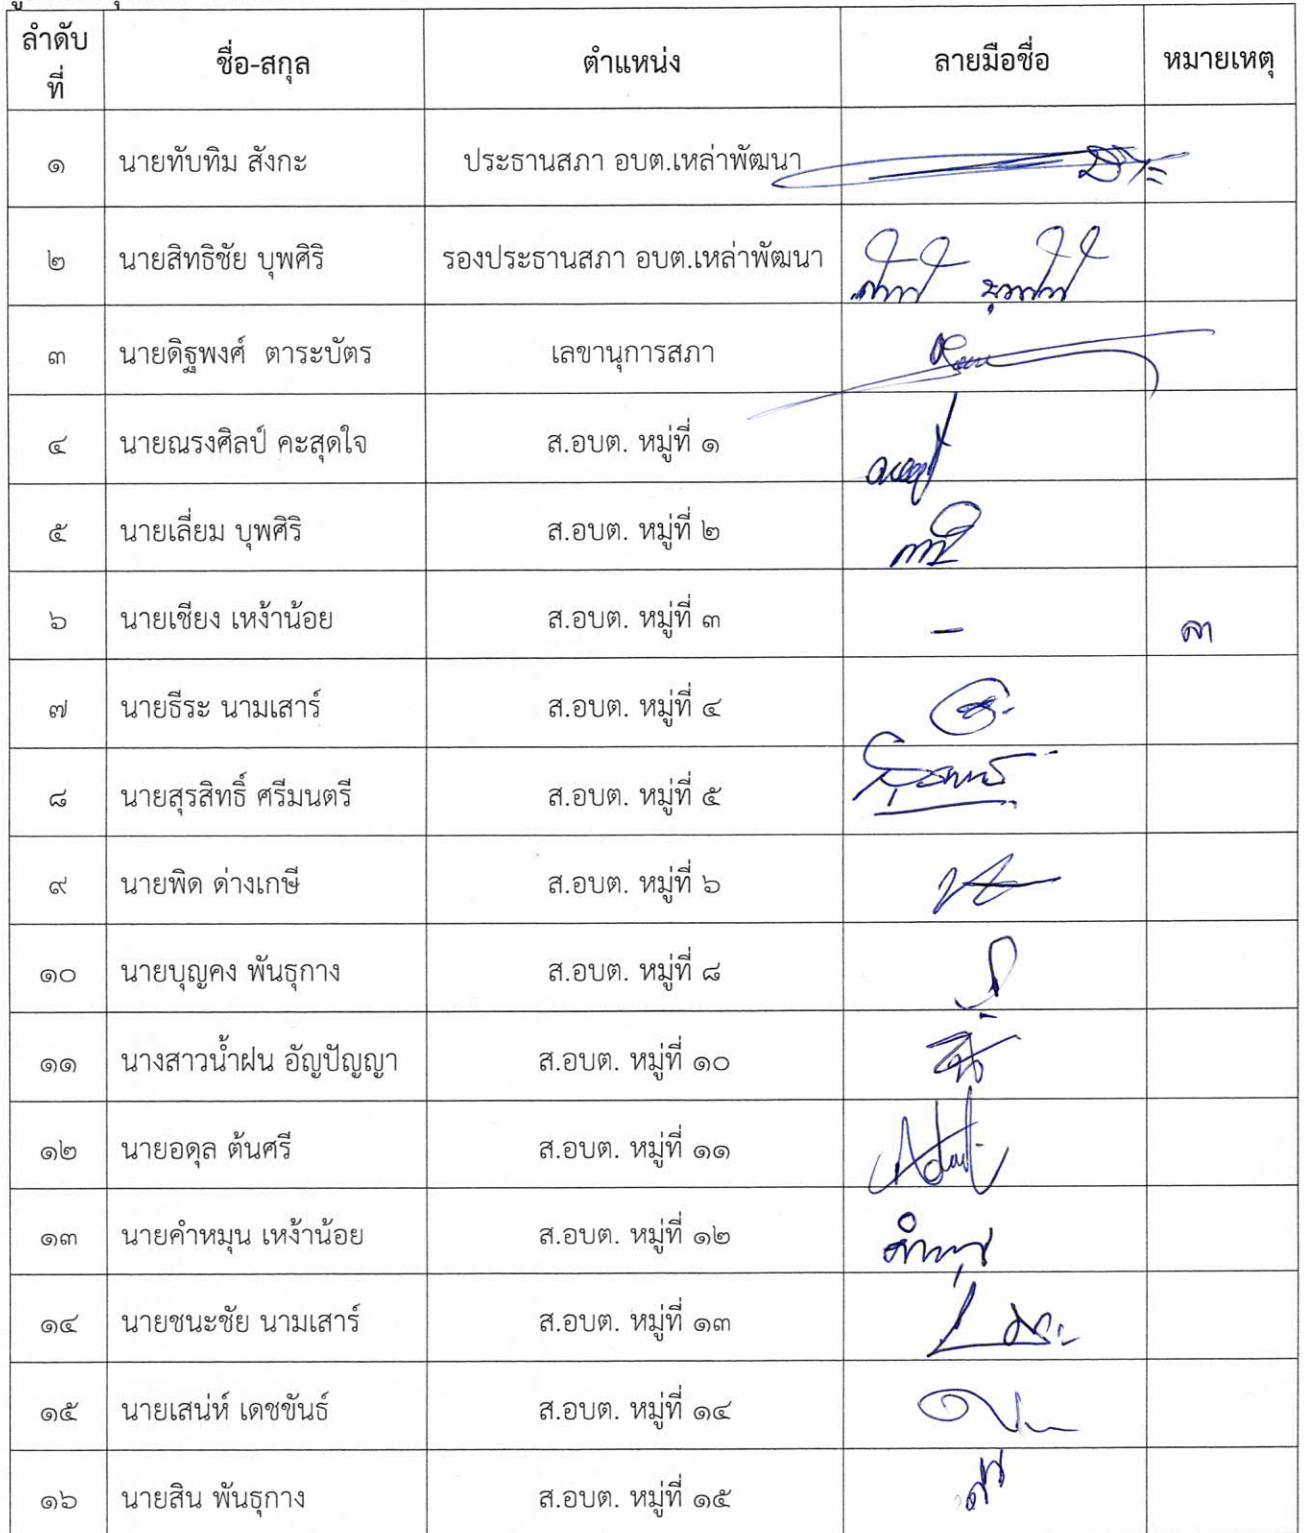 ลำดับที่ ชื่อ-สกุล ตำแหน่ง ลายมือชื่อ หมายเหตุ
๑ นายทับทิม สังกะ ประธานสภา อบต.เหล่าพัฒนา
๒ นายสิทธิชัย บุพศิริ รองประธานสภา อบต.เหล่าพัฒนา
๓ นายดิฐพงศ์ ตาระบัตร เลขานุการสภา
๔ นายณรงศิลป์ คะสุดใจ ส.อบต. หมู่ที่ ๑
๕ นายเลี่ยม บุพศิริ ส.อบต. หมู่ที่ ๒
๖ นายเชียง เหง้าน้อย ส.อบต. หมู่ที่ ๓ - ลา
๗ นายธีระ นามเสาร์ ส.อบต. หมู่ที่ ๔
๘ นายสุรสิทธิ์ ศรีมนตรี ส.อบต. หมู่ที่ ๕
๙ นายพิด ด่างเกษี ส.อบต. หมู่ที่ ๖
๑๐ นายบุญคง พันธุกาง ส.อบต. หมู่ที่ ๘
๑๑ นางสาวน้ำฝน อัญปัญญา ส.อบต. หมู่ที่ ๑๐
๑๒ นายอดุล ต้นศรี ส.อบต. หมู่ที่ ๑๑
๑๓ นายคำหมุน เหง้าน้อย ส.อบต. หมู่ที่ ๑๒
๑๔ นายชนะชัย นามเสาร์ ส.อบต. หมู่ที่ ๑๓
๑๕ นายเสน่ห์ เดชขันธ์ ส.อบต. หมู่ที่ ๑๔
๑๖ นายสิน พันธุกาง ส.อบต. หมู่ที่ ๑๕